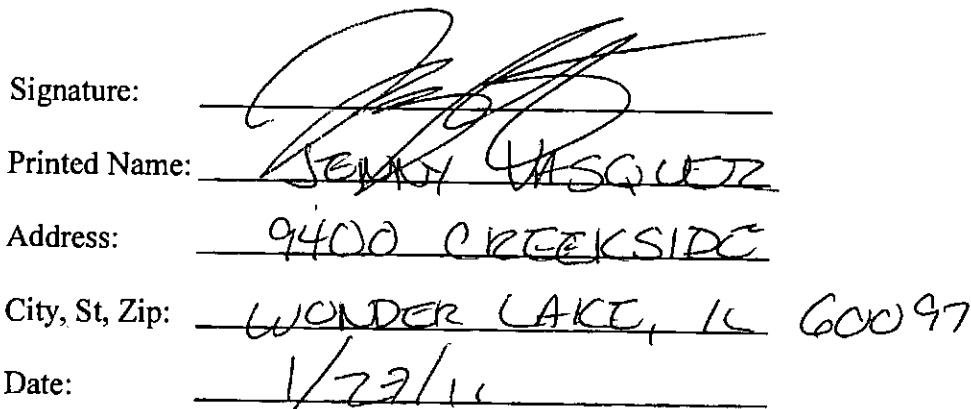 Signature:
Printed Name: JENNY VASQUEZ
Address: 9400 CREEKSIDE
City, St, Zip: WONDER LAKE, IL 60097
Date: